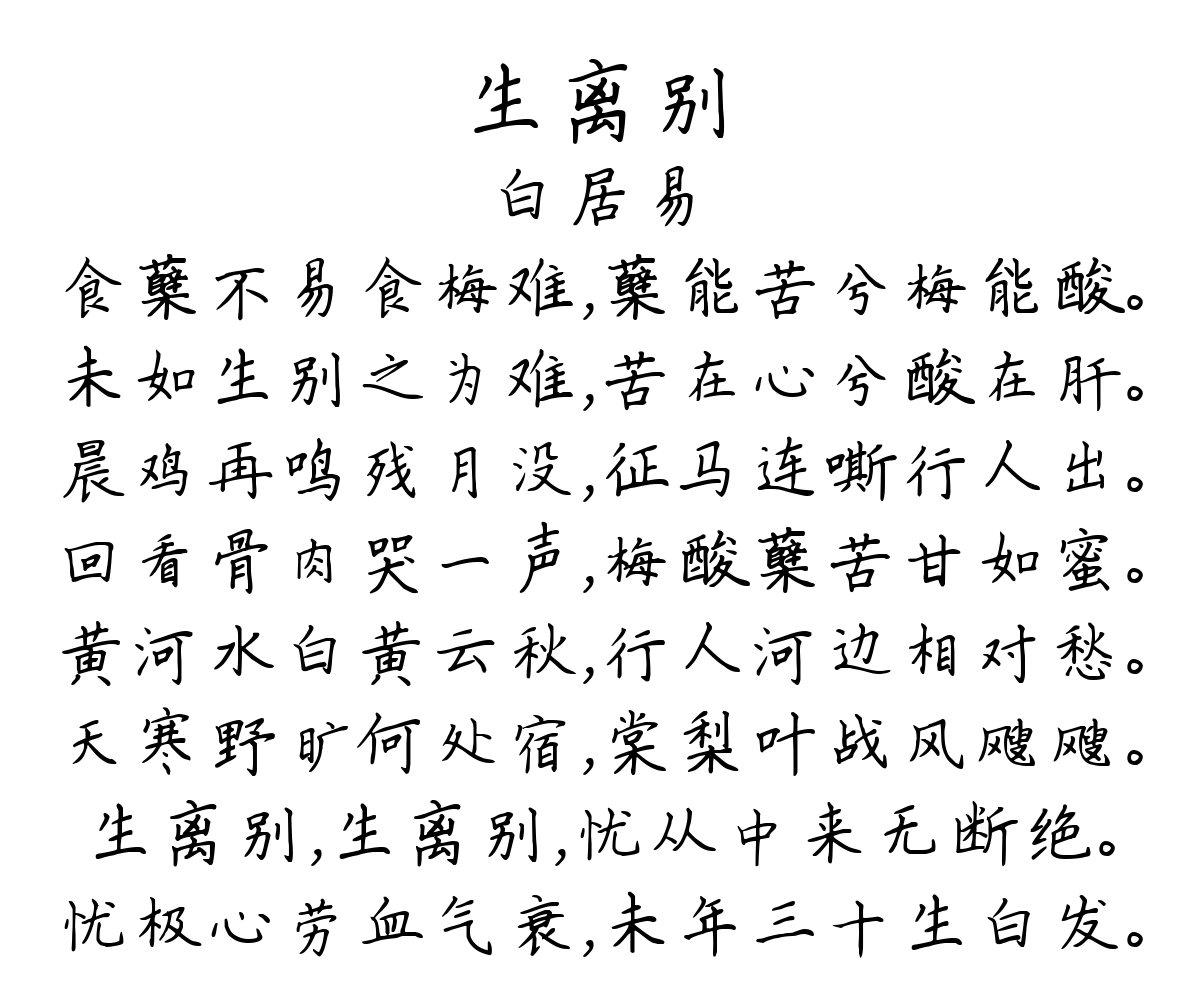 生离别
白居易
食蘖不易食梅难,蘖能苦兮梅能酸。
未如生别之为难,苦在心兮酸在肝。
晨鸡再鸣残月没,征马连嘶行人出。
回看骨肉哭一声,梅酸蘖苦甘如蜜。
黄河水白黄云秋,行人河边相对愁。
天寒野旷何处宿,棠梨叶战风飕飕。
生离别,生离别,忧从中来无断绝。
忧极心劳血气衰,未年三十生白发。